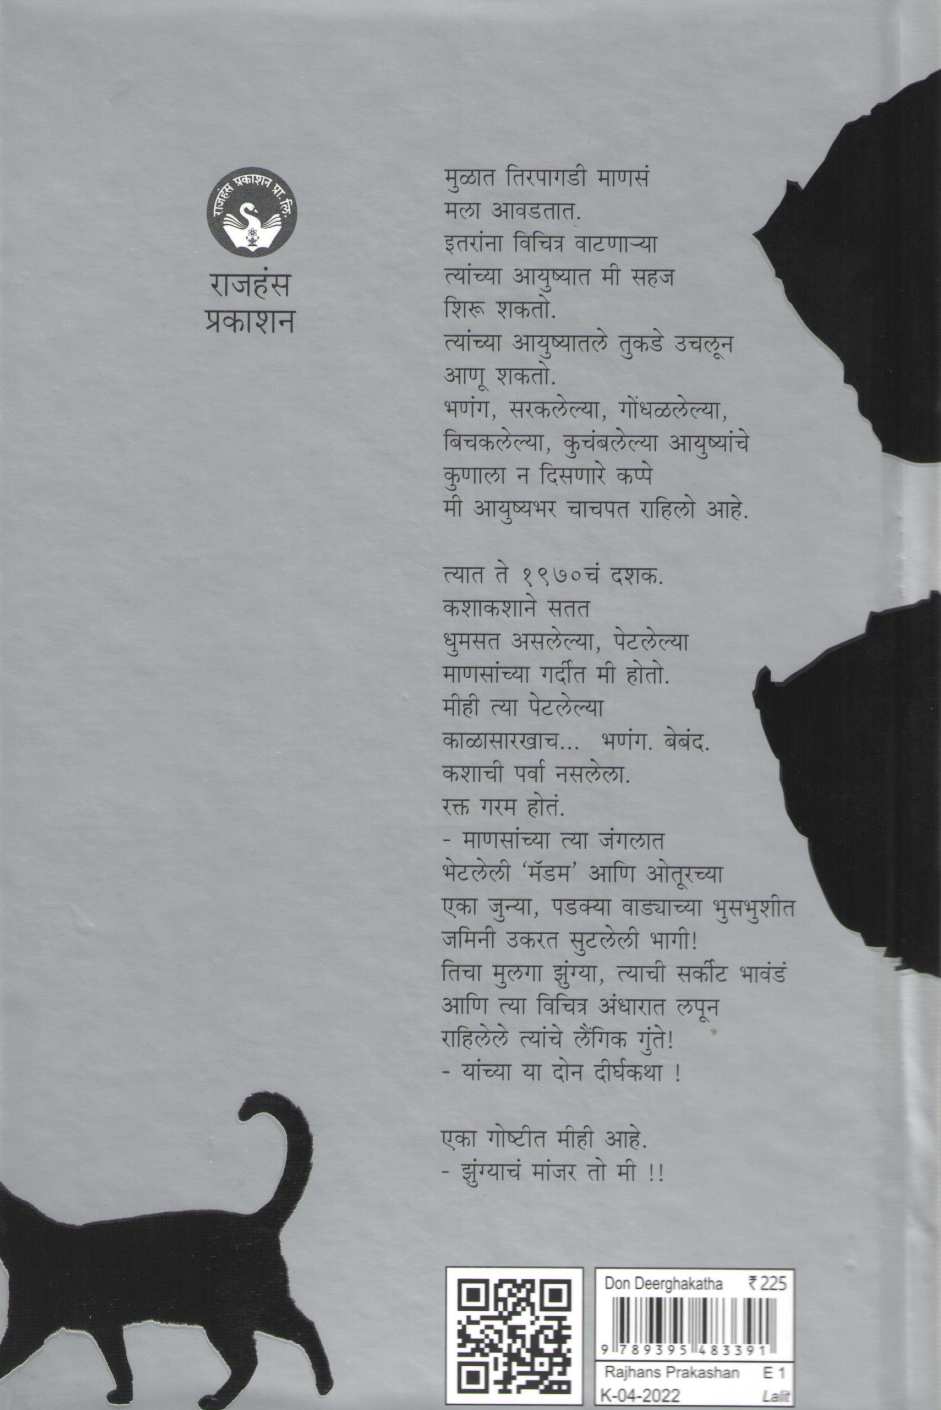 राजहंस प्रकाशन प्रा. लि.
राजहंस
प्रकाशन
मुळात तिरपागडी माणसं
मला आवडतात.
इतरांना विचित्र वाटणाऱ्या
त्यांच्या आयुष्यात मी सहज
शिरू शकतो.
त्यांच्या आयुष्यातले तुकडे उचलून
आणू शकतो.
भणंग, सरकलेल्या, गोंधळलेल्या,
बिचकलेल्या, कुचंबलेल्या आयुष्यांचे
कुणाला न दिसणारे कप्पे
मी आयुष्यभर चाचपत राहिलो आहे.
त्यात ते १९७०चं दशक.
कशाकशाने सतत
धुमसत असलेल्या, पेटलेल्या
माणसांच्या गर्दीत मी होतो.
मीही त्या पेटलेल्या
काळासारखाच... भणंग. बेबंद.
कशाची पर्वा नसलेला.
रक्त गरम होतं.
- माणसांच्या त्या जंगलात
भेटलेली ‘मॅडम’ आणि ओतूरच्या
एका जुन्या, पडक्या वाड्याच्या भुसभुशीत
जमिनी उकरत सुटलेली भागी!
तिचा मुलगा झुंग्या, त्याची सर्कीट भावंडं
आणि त्या विचित्र अंधारात लपून
राहिलेले त्यांचे लैंगिक गुंते!
- यांच्या या दोन दीर्घकथा !
एका गोष्टीत मीही आहे.
- झुंग्याचं मांजर तो मी !!
Don Deerghakatha ₹225
9 789395 483391
Rajhans Prakashan E 1
K-04-2022 Lalit